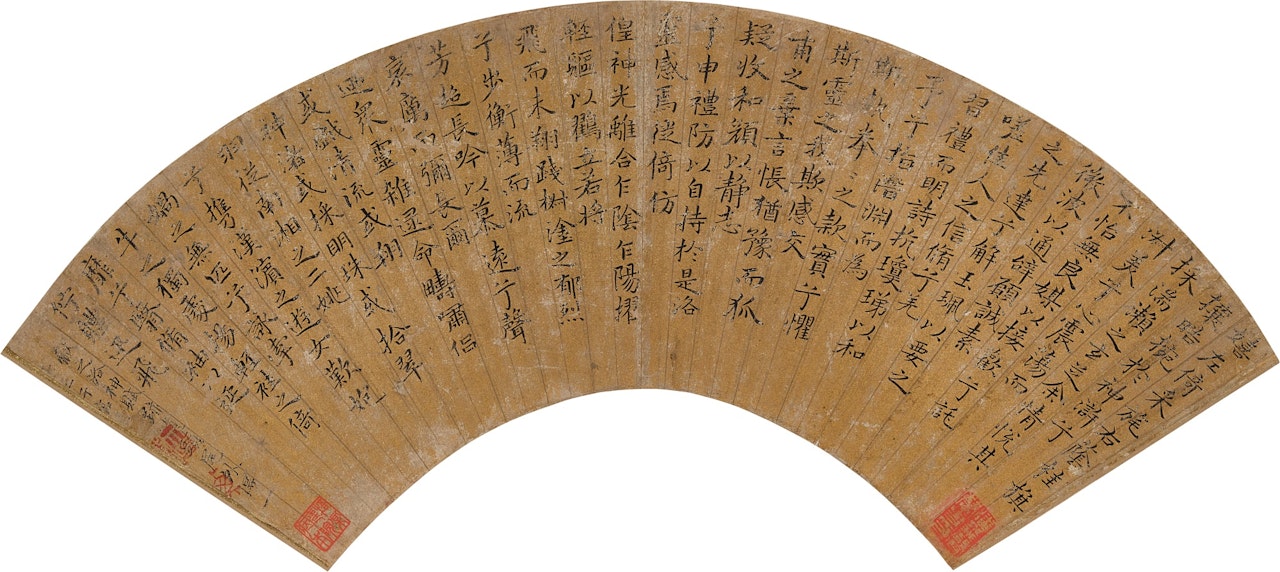 嬉左倚采旄右蔭桂旗
攘皓腕於神滸兮
採湍瀨之玄芝余情悅其
淋美兮心震蕩而
不怡無良媒以接歡兮託
微波以通辭願誠素
之先達兮解玉珮以要之
嗟佳人之信脩兮羌
習禮而明詩抗瓊珶以和
予兮指潛淵而為
斯執拳之之款實兮懼
斯靈之我斯感交
甫之棄言悵猶豫而狐
疑收和顏以靜志
兮申禮防以自持於是洛
靈感焉徙倚仿
偟神光離合乍陰乍陽擢
輕軀以鶴立若將
飛而未翔踐椒塗之郁烈
兮步衡薄而流
芳超長吟以慕遠兮聲
哀厲而彌長爾
迺眾靈雜遝命疇嘯侶
或戲清流或翔
神渚或採明珠或拾翠
羽從南湘之二姚
兮攜漢濱之遊女歎匏
媧之無匹兮詠牽
牛之獨處揚輕袿之倚
靡兮翳脩袖以延
佇體迅飛